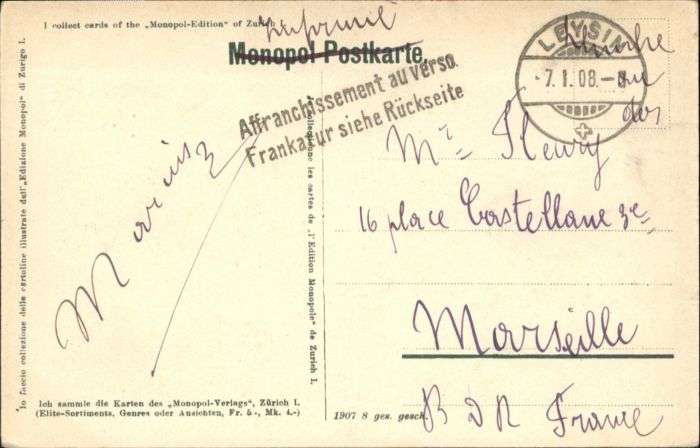 I collect cards of the „Monopol-Edition" of Zurich
Imprimé
Monopol-Postkarte
Affranchissement au verso.
Frankatur siehe Rückseite
LEYSIN
-7.I.08.-8
timbre
au
dos
Mr Fleury
16 place Castellane 3e
Marseille
BDR France
Marius
Io faccio collezione delle cartoline illustrate dell' „Edizione Monopol" di Zurigo I.
Je collectionne les cartes de „l'Edition Monopole" de Zurich I.
Ich sammle die Karten des „Monopol-Verlags", Zürich I.
(Elite-Sortiments, Genres oder Ansichten, Fr. 5.-, Mk. 4.-)
1907 8 ges. gesch.